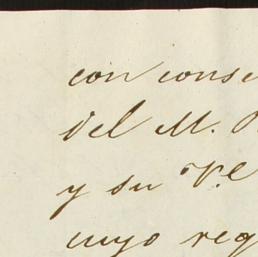 con conse
del M. R
y su Pe.
cuyo req